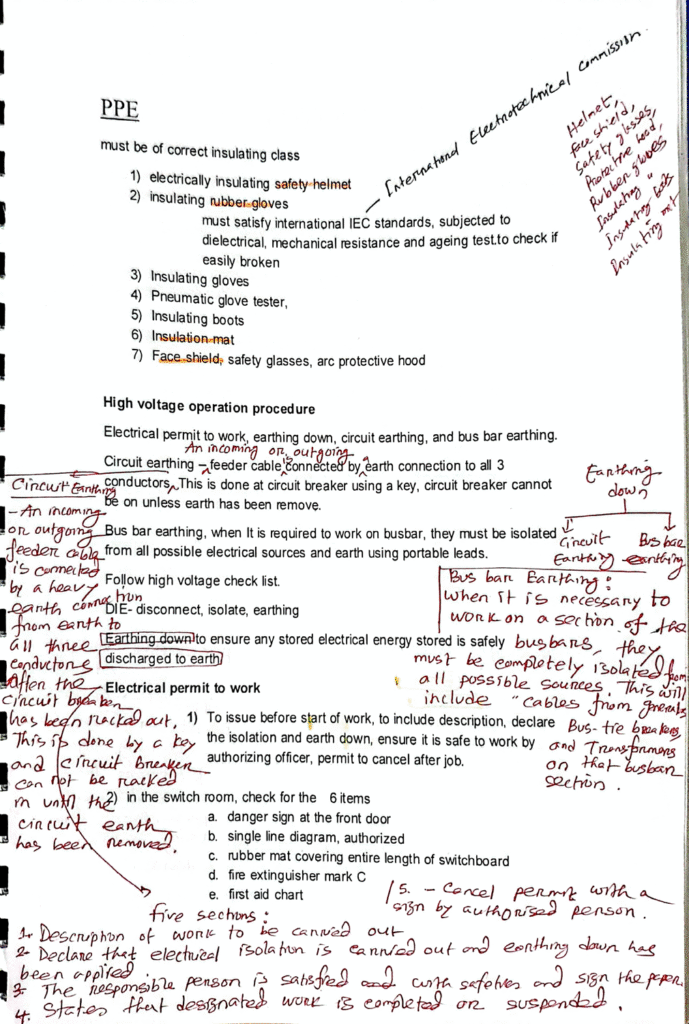 PPE
must be of correct insulating class
1) electrically insulating safety helmet
2) insulating rubber gloves
must satisfy international IEC standards, subjected to
dielectrical, mechanical resistance and ageing test.to check if
easily broken
3) Insulating gloves
4) Pneumatic glove tester,
5) Insulating boots
6) Insulation mat
7) Face shield, safety glasses, arc protective hood
International Electrotechnical Commission.
Helmet,
face shield,
Safety glasses,
Protective hood,
Rubber gloves
Insulating "
Insulating boots
Insulating mat
High voltage operation procedure
Electrical permit to work, earthing down, circuit earthing, and bus bar earthing.
An incoming or outgoing
Circuit earthing – feeder cable connected by earth connection to all 3
conductors. This is done at circuit breaker using a key, circuit breaker cannot
be on unless earth has been remove.
Bus bar earthing, when It is required to work on busbar, they must be isolated
from all possible electrical sources and earth using portable leads.
Follow high voltage check list.
DIE- disconnect, isolate, earthing
Earthing down to ensure any stored electrical energy stored is safely
discharged to earth
Circuit Earthing
- An incoming
or outgoing
feeder cable
is connected
by a heavy
earth connection
from earth to
all three
conductors
After the
circuit breaker
has been racked out.
This is done by a key
and circuit breaker
can not be racked
in until the
circuit earth
has been removed.
Earthing
down
Circuit
Earthing
Bus bar
earthing
Bus bar Earthing:
when it is necessary to
work on a section of the
busbars, they
must be completely isolated from
all possible sources. This will
include cables from generators
Bus-tie breakers,
and Transformers
on that busbar
section.
Electrical permit to work
1) To issue before start of work, to include description, declare
the isolation and earth down, ensure it is safe to work by
authorizing officer, permit to cancel after job.
2) in the switch room, check for the 6 items
a. danger sign at the front door
b. single line diagram, authorized
c. rubber mat covering entire length of switchboard
d. fire extinguisher mark C
e. first aid chart
five sections:
1. Description of work to be carried out
2. Declare that electrical isolation is carried out and earthing down has
been applied.
3. The responsible person is satisfied and with safeties and sign the paper.
4. States that designated work is completed or suspended.
5. - Cancel permit with a
sign by authorised person.